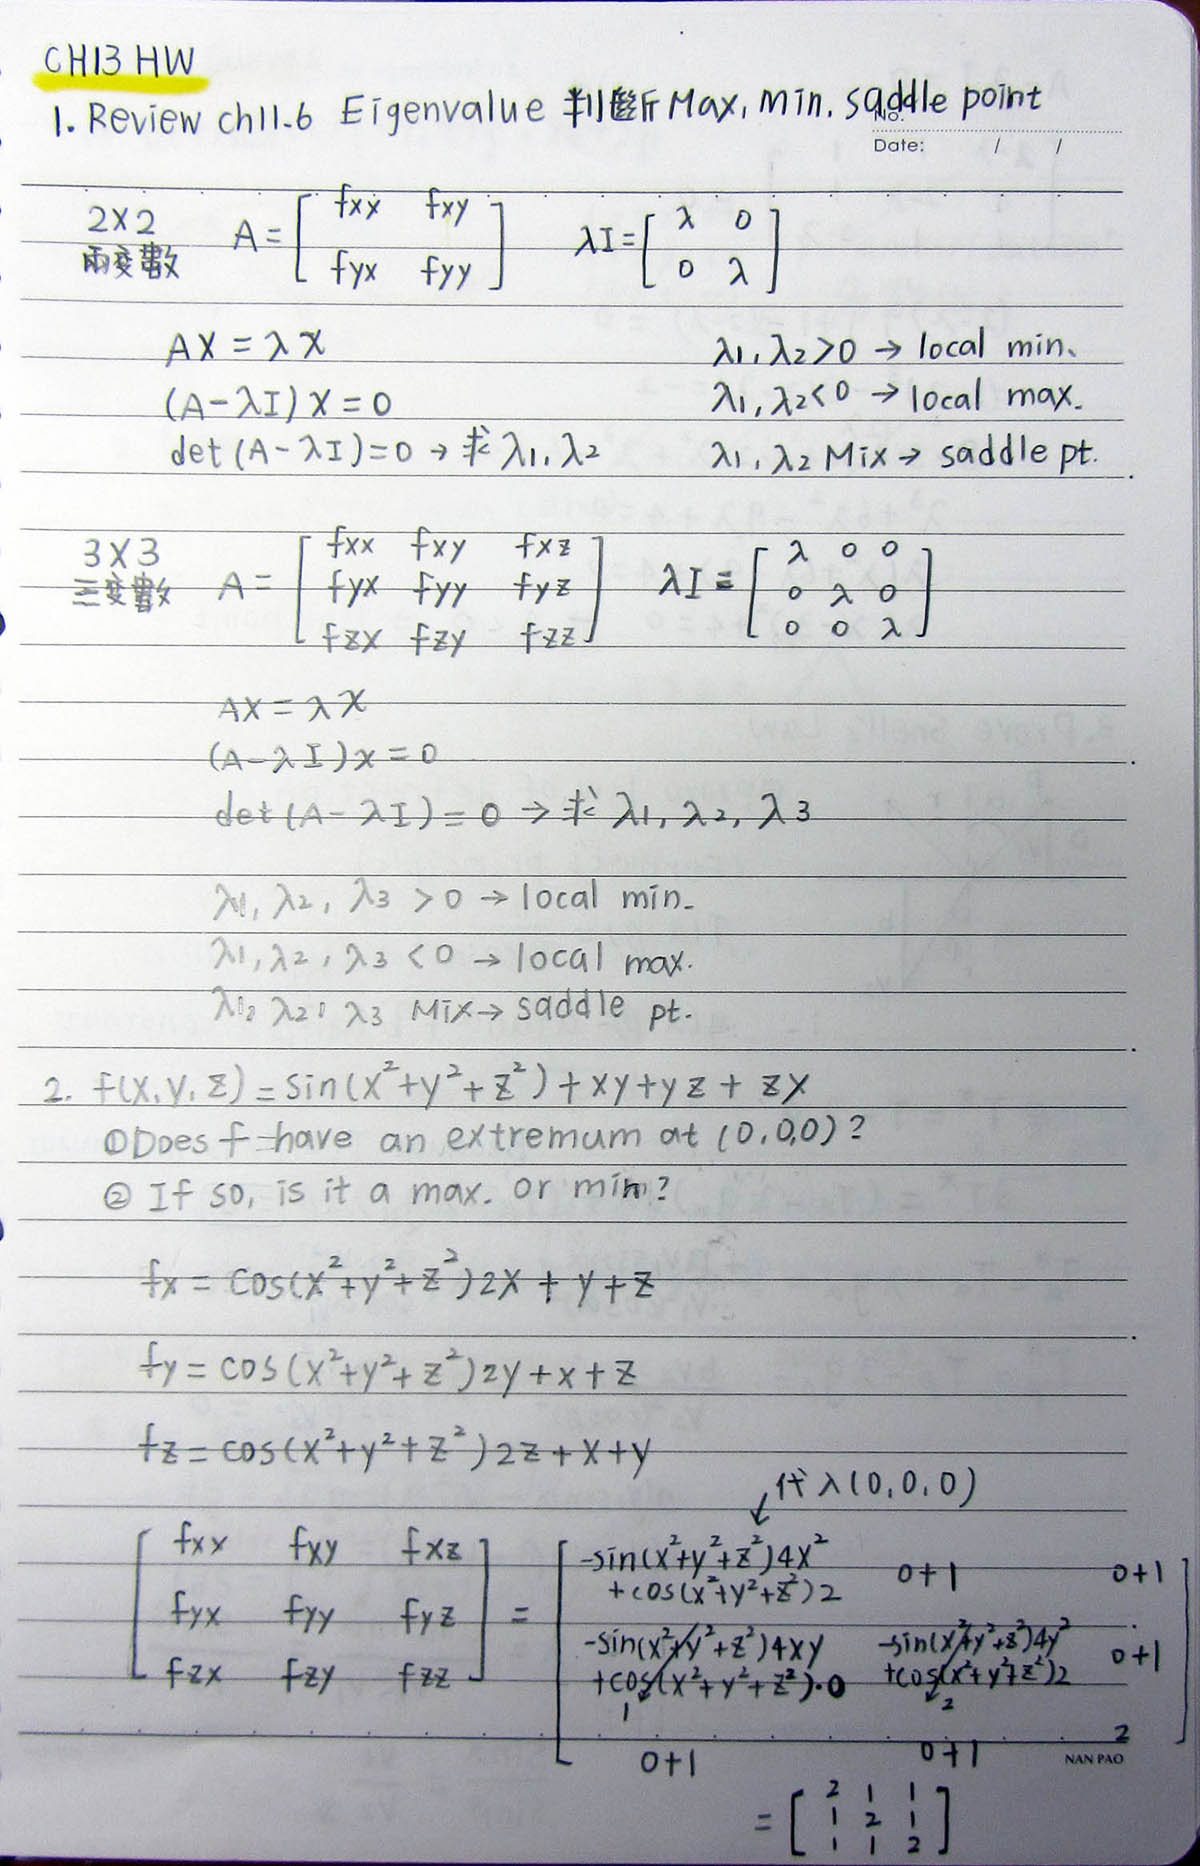 CH13 HW
1. Review ch11.6 Eigenvalue 判斷 Max, min. saddle point
No.
Date: / /
2×2 A = [ fxx fxy
兩變數 fyx fyy ] λI = [ λ 0
0 λ ]
AX = λX λ1, λ2>0 → local min.
(A-λI)X = 0 λ1, λ2<0 → local max.
det(A-λI)=0 → 求 λ1, λ2 λ1, λ2 Mix → saddle pt.
3×3 A = [ fxx fxy fxz
三變數 fyx fyy fyz
fzx fzy fzz ] λI = [ λ 0 0
0 λ 0
0 0 λ ]
AX = λX
(A-λI)x = 0
det(A-λI) = 0 → 求 λ1, λ2, λ3
λ1, λ2, λ3 > 0 → local min.
λ1, λ2, λ3 < 0 → local max.
λ1, λ2, λ3 Mix → saddle pt.
2. f(x,y,z) = sin(x²+y²+z²)+xy+yz+zx
① Does f have an extremum at (0,0,0)?
② If so, is it a max. or min?
fx = cos(x²+y²+z²)2x + y + z
fy = cos(x²+y²+z²)2y + x + z
fz = cos(x²+y²+z²)2z + x + y
↙ 代入(0,0,0)
[ fxx fxy fxz
fyx fyy fyz
fzx fzy fzz ] =
[ -sin(x²+y²+z²)4x² +cos(x²+y²+z²)2 0+1 0+1
-sin(x²+y²+z²)4xy +cos(x²+y²+z²)·0 1 -sin(x²+y²+z²)4y² +cos(x²+y²+z²)2 2 0+1
0+1 0+1 2 ]
NAN PAO
= [ 2 1 1
1 2 1
1 1 2 ]